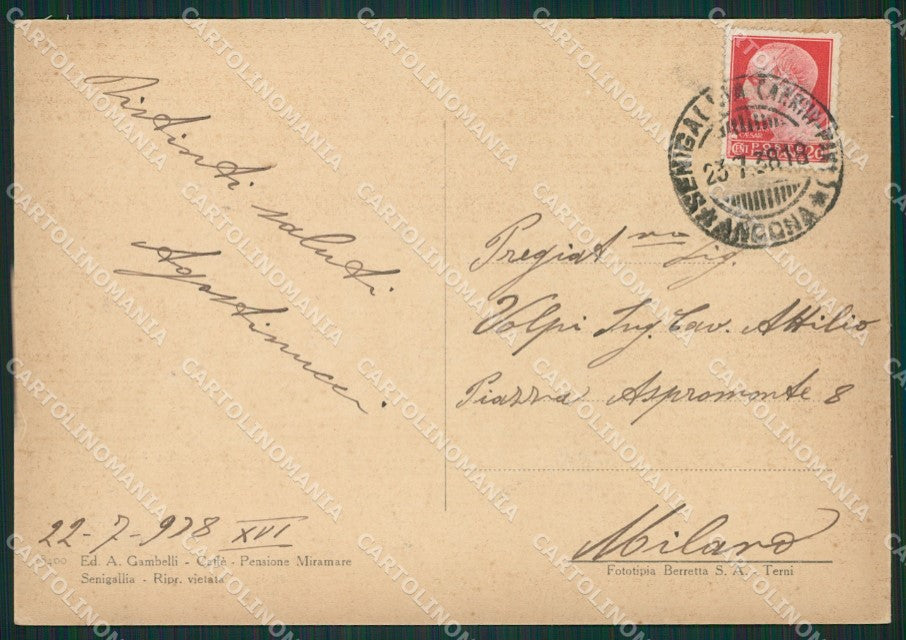 Distinti saluti
Agostinucci
22-7-938 XVI
5400 Ed. A. Gambelli - Caffè - Pensione Miramare
Senigallia - Ripr. vietata
CENT 20
SENIGALLIA
23.7.38 18
★ ANCONA ★
Pregiat mo Sig.
Volpi Ing. Cav. Attilio
Piazza Aspromonte 8
Milano
Fototipia Berretta S. A. - Terni
CARTOLINOMANIA